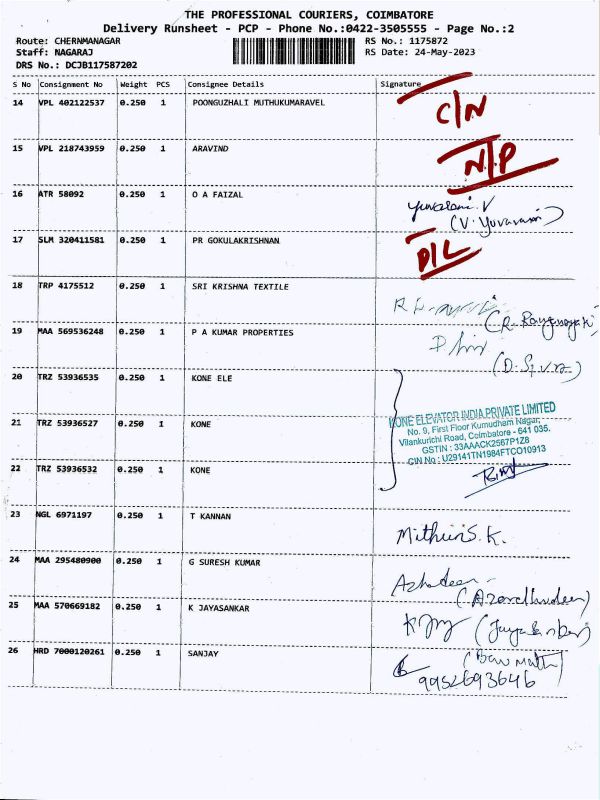 THE PROFESSIONAL COURIERS, COIMBATORE
Delivery Runsheet - PCP - Phone No.:0422-3505555 - Page No.:2
Route: CHERNMANAGAR RS No.: 1175872
Staff: NAGARAJ RS Date: 24-May-2023
DRS No.: DCJB117587202
S No Consignment No Weight PCS Consignee Details Signature
14 VPL 402122537 0.250 1 POONGUZHALI MUTHUKUMARAVEL C/N
15 VPL 218743959 0.250 1 ARAVIND N/P
16 ATR 58092 0.250 1 O A FAIZAL
17 SLM 320411581 0.250 1 PR GOKULAKRISHNAN D/L
18 TRP 4175512 0.250 1 SRI KRISHNA TEXTILE
19 MAA 569536248 0.250 1 P A KUMAR PROPERTIES
(D. Siva)
20 TRZ 53936535 0.250 1 KONE ELE
21 TRZ 53936527 0.250 1 KONE
KONE ELEVATOR INDIA PRIVATE LIMITED
No. 9, First Floor Kumudham Nagar,
Vilankurichi Road, Coimbatore - 641 035.
GSTIN : 33AAACK2567P1Z8
CIN No : U29141TN1984FTC010913
22 TRZ 53936532 0.250 1 KONE
23 NGL 6971197 0.250 1 T KANNAN
Mithun S.K.
24 MAA 295480900 0.250 1 G SURESH KUMAR
25 MAA 570669182 0.250 1 K JAYASANKAR
26 HRD 7000120261 0.250 1 SANJAY
9952693646